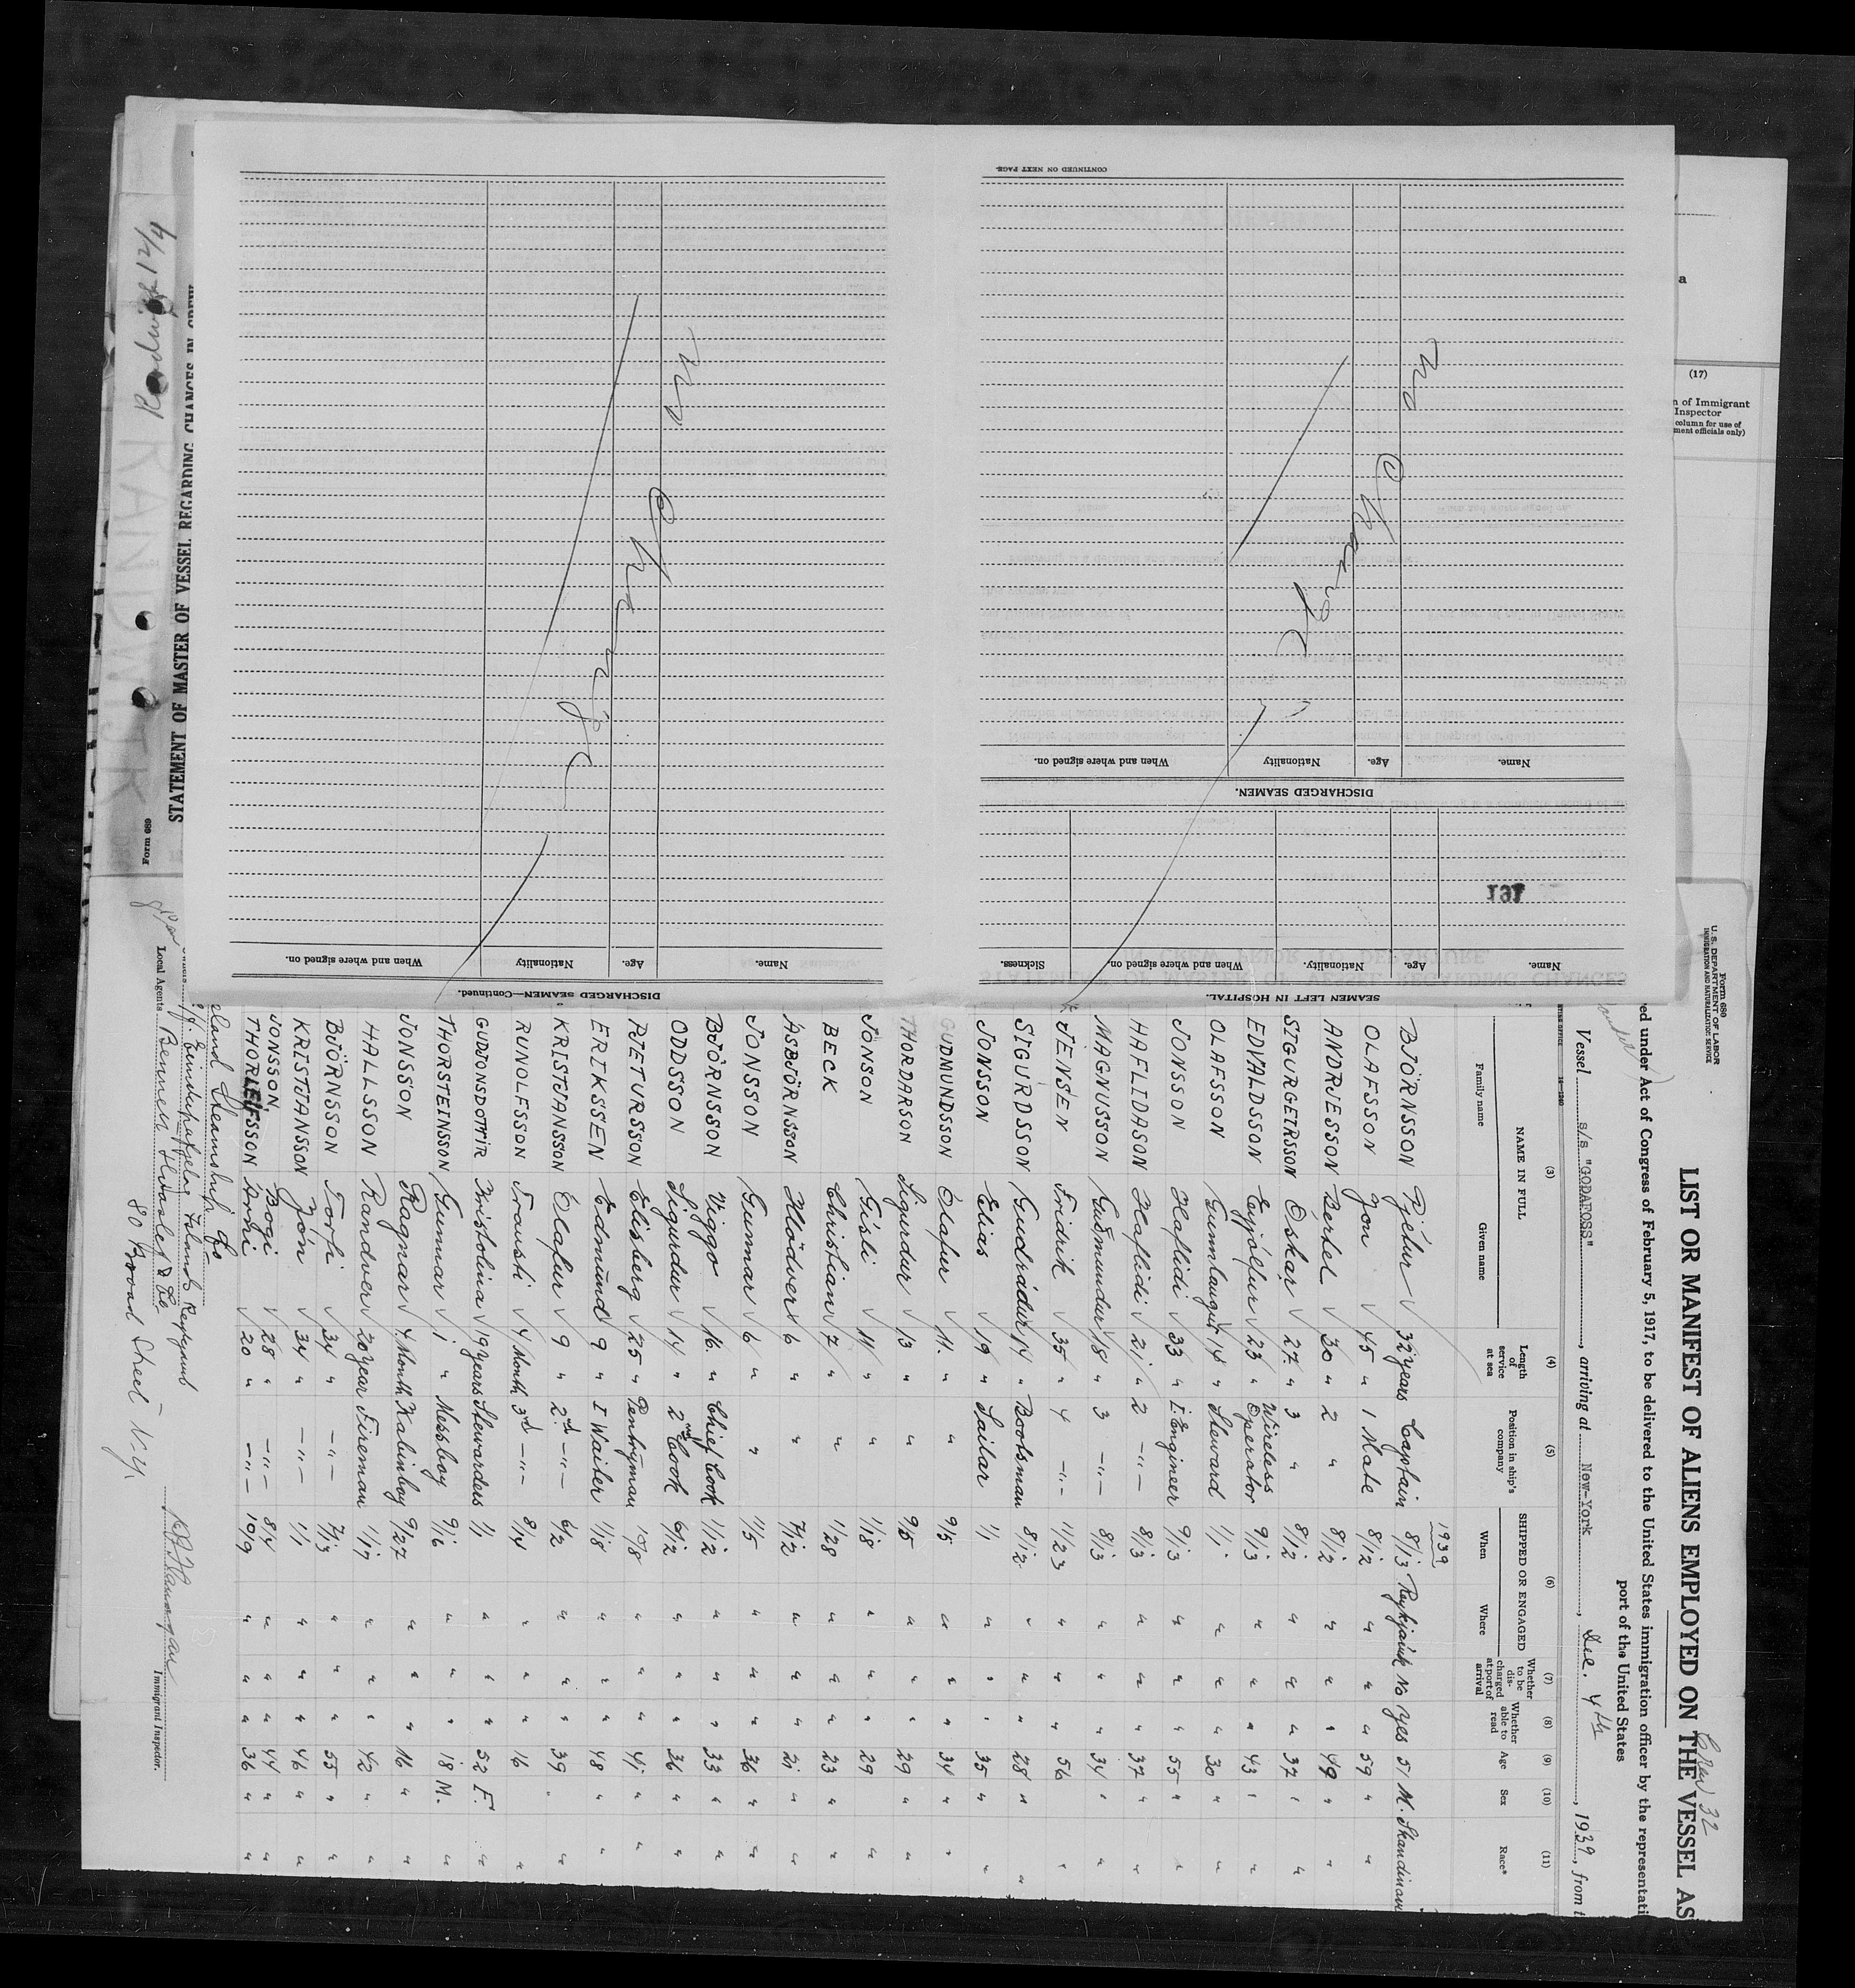 Form 680
U. S. DEPARTMENT OF LABOR
IMMIGRATION AND NATURALIZATION SERVICE
Crew 32
LIST OR MANIFEST OF ALIENS EMPLOYED ON THE VESSEL AS
ed under Act of Congress of February 5, 1917, to be delivered to the United States immigration officer by the representati
port of the United States
Vessel s/s "GODAFOSS", arriving at New-York, Dec. 4th, 1939, from t
(3) (4) (5) (6) (7) (8) (9) (10) (11)
NAME IN FULL
Family name Given name
Length of service at sea
Position in ship's company
SHIPPED OR ENGAGED
When Where
Whether to be discharged at port of arrival
Whether able to read
Age
Sex
Race*
1939
BJÖRNSSON Pjetur √ 32 years Captain 8/13 Reykjavik No Yes 51 M. Skandinav
OLAFSSON Jon √ 45 " 1 Mate 8/12 " " " 59 " "
ANDRJESSON Bertel √ 30 " 2 " 8/12 " " " 49 " "
SIGURGEIRSSON Oskar √ 27. " 3 " 8/12 " " " 37 " "
EDVALDSSON Eyjólfur √ 23 " Wireless Operator 9/13 " " " 43 " "
OLAFSSON Gunnlaugur √ 14 " Steward 1/1 " " " 30 " "
JONSSON Haflidi √ 33 " I Enginer 9/13 " " " 55 " "
HAFLIDASON Haflidi √ 21 " 2 -"- 8/13 " " " 37 " "
MAGNUSSON Guðmundur √ 18 " 3 -"- 8/13 " " " 34 " "
JENSEN Fridrik √ 35 " 4 -"- 11/23 " " " 56 "
SIGURDSSON Gudrádur 14 " Bootsman 8/12 " " " 28 " "
JONSSON Elias √ 19 " Sailar 1/1 " " " 35 " "
GUDMUNDSSON Olafur √ 11. " " 9/5 " " " 34 " "
THORDARSON Sigurdur √ 13 " " 9/5 " " " 29 " "
JONSON Gísli √ 11 " " 1/18 " " " 29 "
BECK Christian √ 7 " " 1/28 " " " 23 " "
ÁSBJÖRNSSON Hlödver √ 6 " " 7/12 " " " 21 " "
JONSSON Gunnar √ 6 " " 11/5 " " " 36 " "
BJÖRNSSON Viggo √ 16. " Chief Cook 1/12 " " " 33 " "
ODDSSON Sigurdur √ 14 " 2nd Cook 6/12 " " " 36 " "
PJETURSSON Elisberg √ 25 " Pentryman 10/8 " " " 41 " "
ERIKSSEN Edmund √ 9 " I Waiter 1/18 " " " 48 " "
KRISTJANSSON Olafur √ 9 " 2d -"- 6/2 " " " 39 " "
RUNOLFSSON Trausti √ 4 Month 3d -"- 8/14 " " " 16 "
GUDJONSDOTTIR Kristolina √ 19 years Stewardess 1/1 " " " 52 F. "
THORSTEINSSON Gunnar √ 1 " Messboy 9/16 " " " 18 M. "
JONSSON Ragnar √ 4 Month Kabinboy 9/27 " " " 16 " "
HALLSSON Randver √ 20 year Fireman 1/17 " " " 42 " "
BJÖRNSSON Torfi √ 34 " -"- 7/13 " " " 55 " "
KRISTJANSSON Jón √ 34 " -"- 1/1 " " " 46 " "
JONSSON Bogi √ 28 " -"- 8/4 " " " 44 " "
THORLEIFSSON Arni √ 20 " -"- 10/9 " " " 36 " "
land Steamship Co
Reykjavik
Local Agents Bennett Hvoslef & Co
80 Broad Street – N.Y.
Immigrant Inspector.
(17)
n of Immigrant
Inspector
column for use of
ment officials only)
a
SEAMEN LEFT IN HOSPITAL.
Name. Age. Nationality. When and where signed on. Sickness.
191
DISCHARGED SEAMEN.
Name. Age. Nationality When and where signed on.
No Change
CONTINUED ON NEXT PAGE.
DISCHARGED SEAMEN—Continued.
Name. Age. Nationality When and where signed on.
No Change
Form 689
STATEMENT OF MASTER OF VESSEL REGARDING CHANGES IN CREW